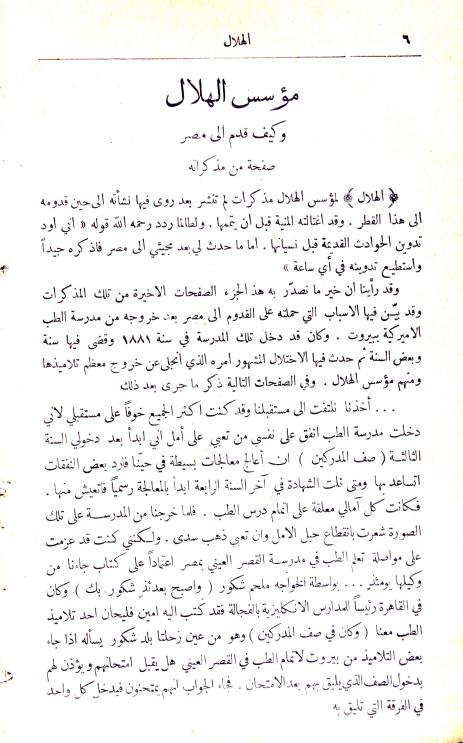 ٦
الهلال
مؤسس الهلال
وكيف قدم الى مصر
صفحة من مذكراته
﴿ الهلال ﴾ لمؤسس الهلال مذكرات لم تنشر بعد روى فيها نشأته الى حين قدومه
الى هذا القطر . وقد اغتالته المنية قبل ان يتمها . ولطالما ردد رحمه الله قوله « اني اود
تدوين الحوادث القديمة قبل نسيانها . اما ما حدث لي بعد مجيئي الى مصر فاذكره جيداً
واستطيع تدوينه في أي ساعة »
وقد رأينا ان خير ما نصدّر به هذا الجزء الصفحات الاخيرة من تلك المذكرات
وقد بيّن فيها الاسباب التي حملته على القدوم الى مصر بعد خروجه من مدرسة الطب
الاميركية ببيروت . وكان قد دخل تلك المدرسة في سنة ١٨٨١ وقضى فيها سنة
وبعض السنة ثم حدث فيها الاختلال المشهور امره الذي انجلى عن خروج معظم تلاميذها
ومنهم مؤسس الهلال . وفي الصفحات التالية ذكر ما جرى بعد ذلك
... أخذنا نلتفت الى مستقبلنا وقد كنت اكثر الجميع خوفاً على مستقبلي لاني
دخلت مدرسة الطب انفق على نفسي من تعبي على أمل اني ابدأ بعد دخولي السنة
الثالثة ( صف المدركين ) ان أعالج معالجات بسيطة في حيّنا فارد بعض النفقات
اتساعد بها ومتى نلت الشهادة في آخر السنة الرابعة ابدأ بالمعالجة رسمياً فاتعيش منها .
فكانت كل آمالي معلقة على اتمام درس الطب . فلما خرجنا من المدرسة على تلك
الصورة شعرت بانقطاع حبل الامل وان تعبي ذهب سدى . ولكنني كنت قد عزمت
على مواصلة تعلم الطب في مدرسة القصر العيني بمصر اعتماداً على كتاب جاءنا من
وكيلها يومئذ ... بواسطة الخواجه ملحم شكور ( واصبح بعدئذ شكور بك ) وكان
في القاهرة رئيساً للمدارس الانكليزية بالفجالة فقد كتب اليه امين فليحان احد تلاميذ
الطب معنا ( وكان في صف المدركين ) وهو من عين زحلتا بلد شكور يسأله اذا جاء
بعض التلاميذ من بيروت لاتمام الطب في القصر العيني هل يقبل امتحانهم ويؤذن لهم
بدخول الصف الذي يليق بهم بعد الامتحان . فجاء الجواب انهم يمتحنون فيدخل كل واحد
في الفرقة التي تليق به